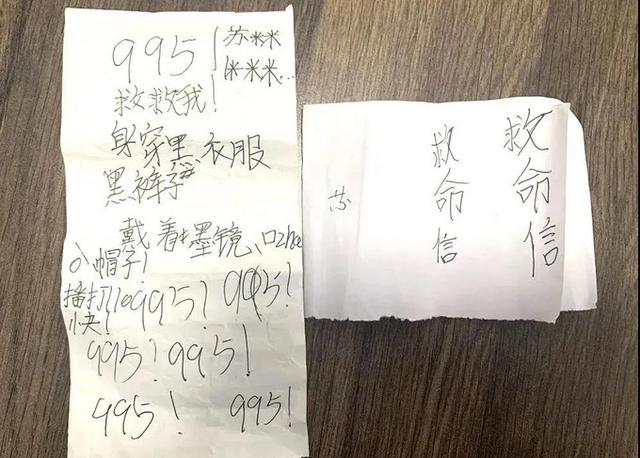 995！苏米米
米米米...
救救我！
身穿黑衣服
黑裤子
戴着墨镜、口zhao
小帽子！
播打110 995！995！
快！
995！995！
995！995！
救命信
救命信
苏